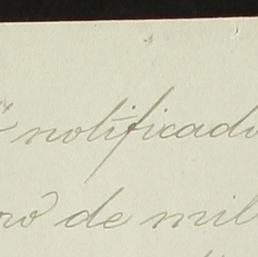 notificado
de mil